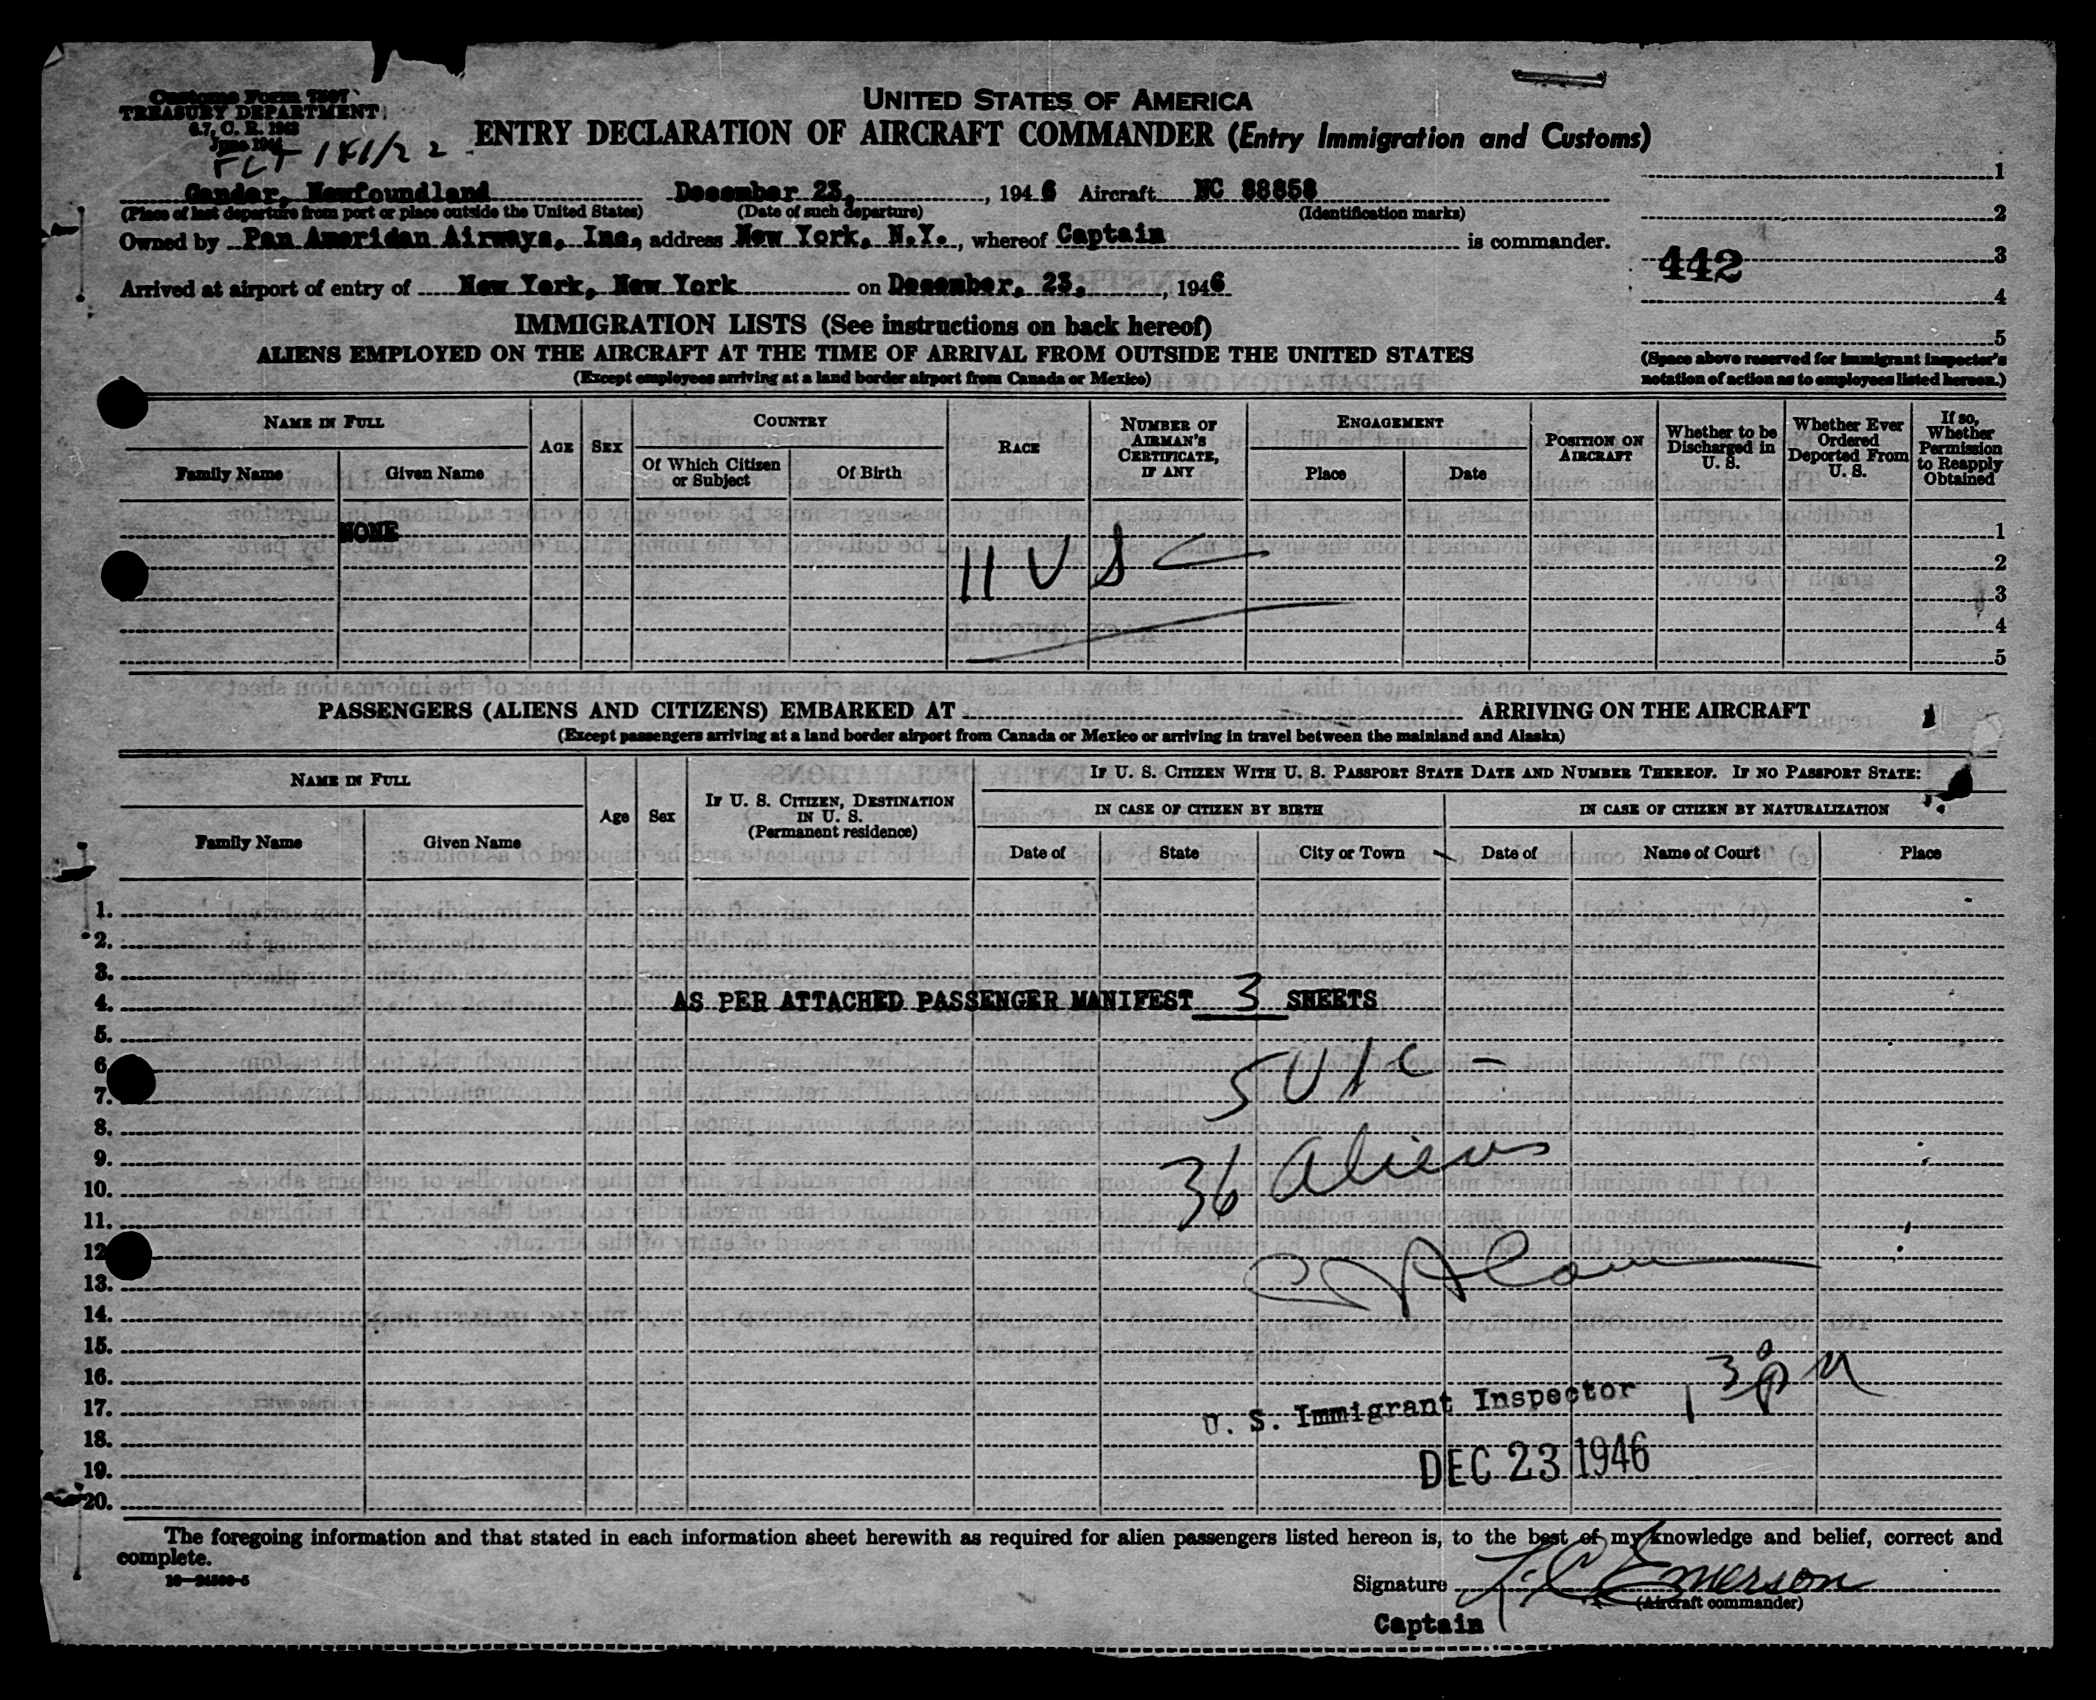 Customs Form 7507
TREASURY DEPARTMENT
June 1944
FLT 141/22
UNITED STATES OF AMERICA
ENTRY DECLARATION OF AIRCRAFT COMMANDER (Entry Immigration and Customs)
Gander, Newfoundland December 23, 1946 Aircraft NC 88858
(Place of last departure from port or place outside the United States) (Date of such departure) (Identification marks)
Owned by Pan American Airways, Inc., address New York, N.Y., whereof Captain is commander.
Arrived at airport of entry of New York, New York on December, 23, 1946
1
2
442 3
4
5
(Space above reserved for immigrant inspector's
notation of action as to employees listed hereon.)
IMMIGRATION LISTS (See instructions on back hereof)
ALIENS EMPLOYED ON THE AIRCRAFT AT THE TIME OF ARRIVAL FROM OUTSIDE THE UNITED STATES
(Except employees arriving at a land border airport from Canada or Mexico)
NAME IN FULL
Family Name Given Name
AGE SEX
COUNTRY
Of Which Citizen or Subject
Of Birth
RACE
NUMBER OF AIRMAN'S CERTIFICATE, IF ANY
ENGAGEMENT
Place Date
POSITION ON AIRCRAFT
Whether to be Discharged in U. S.
Whether Ever Ordered Deported From U. S.
If so, Whether Permission to Reapply Obtained
NONE 1
11 USC 2
3
4
5
PASSENGERS (ALIENS AND CITIZENS) EMBARKED AT ARRIVING ON THE AIRCRAFT
(Except passengers arriving at a land border airport from Canada or Mexico or arriving in travel between the mainland and Alaska)
NAME IN FULL
Family Name Given Name
Age Sex
IF U. S. CITIZEN, DESTINATION IN U. S.
(Permanent residence)
IF U. S. CITIZEN WITH U. S. PASSPORT STATE DATE AND NUMBER THEREOF. IF NO PASSPORT STATE:
IN CASE OF CITIZEN BY BIRTH IN CASE OF CITIZEN BY NATURALIZATION
Date of State City or Town Date of Name of Court Place
1.
2.
3.
4. AS PER ATTACHED PASSENGER MANIFEST 3 SHEETS
5.
6.
7.
8.
9.
36 Aliens
10.
11.
12
13.
14.
15.
16.
17. U. S. Immigrant Inspector 1 30 PM
18.
19. DEC 23 1946
20.
The foregoing information and that stated in each information sheet herewith as required for alien passengers listed hereon is, to the best of my knowledge and belief, correct and
complete.
Signature Emerson
(Aircraft commander)
Captain